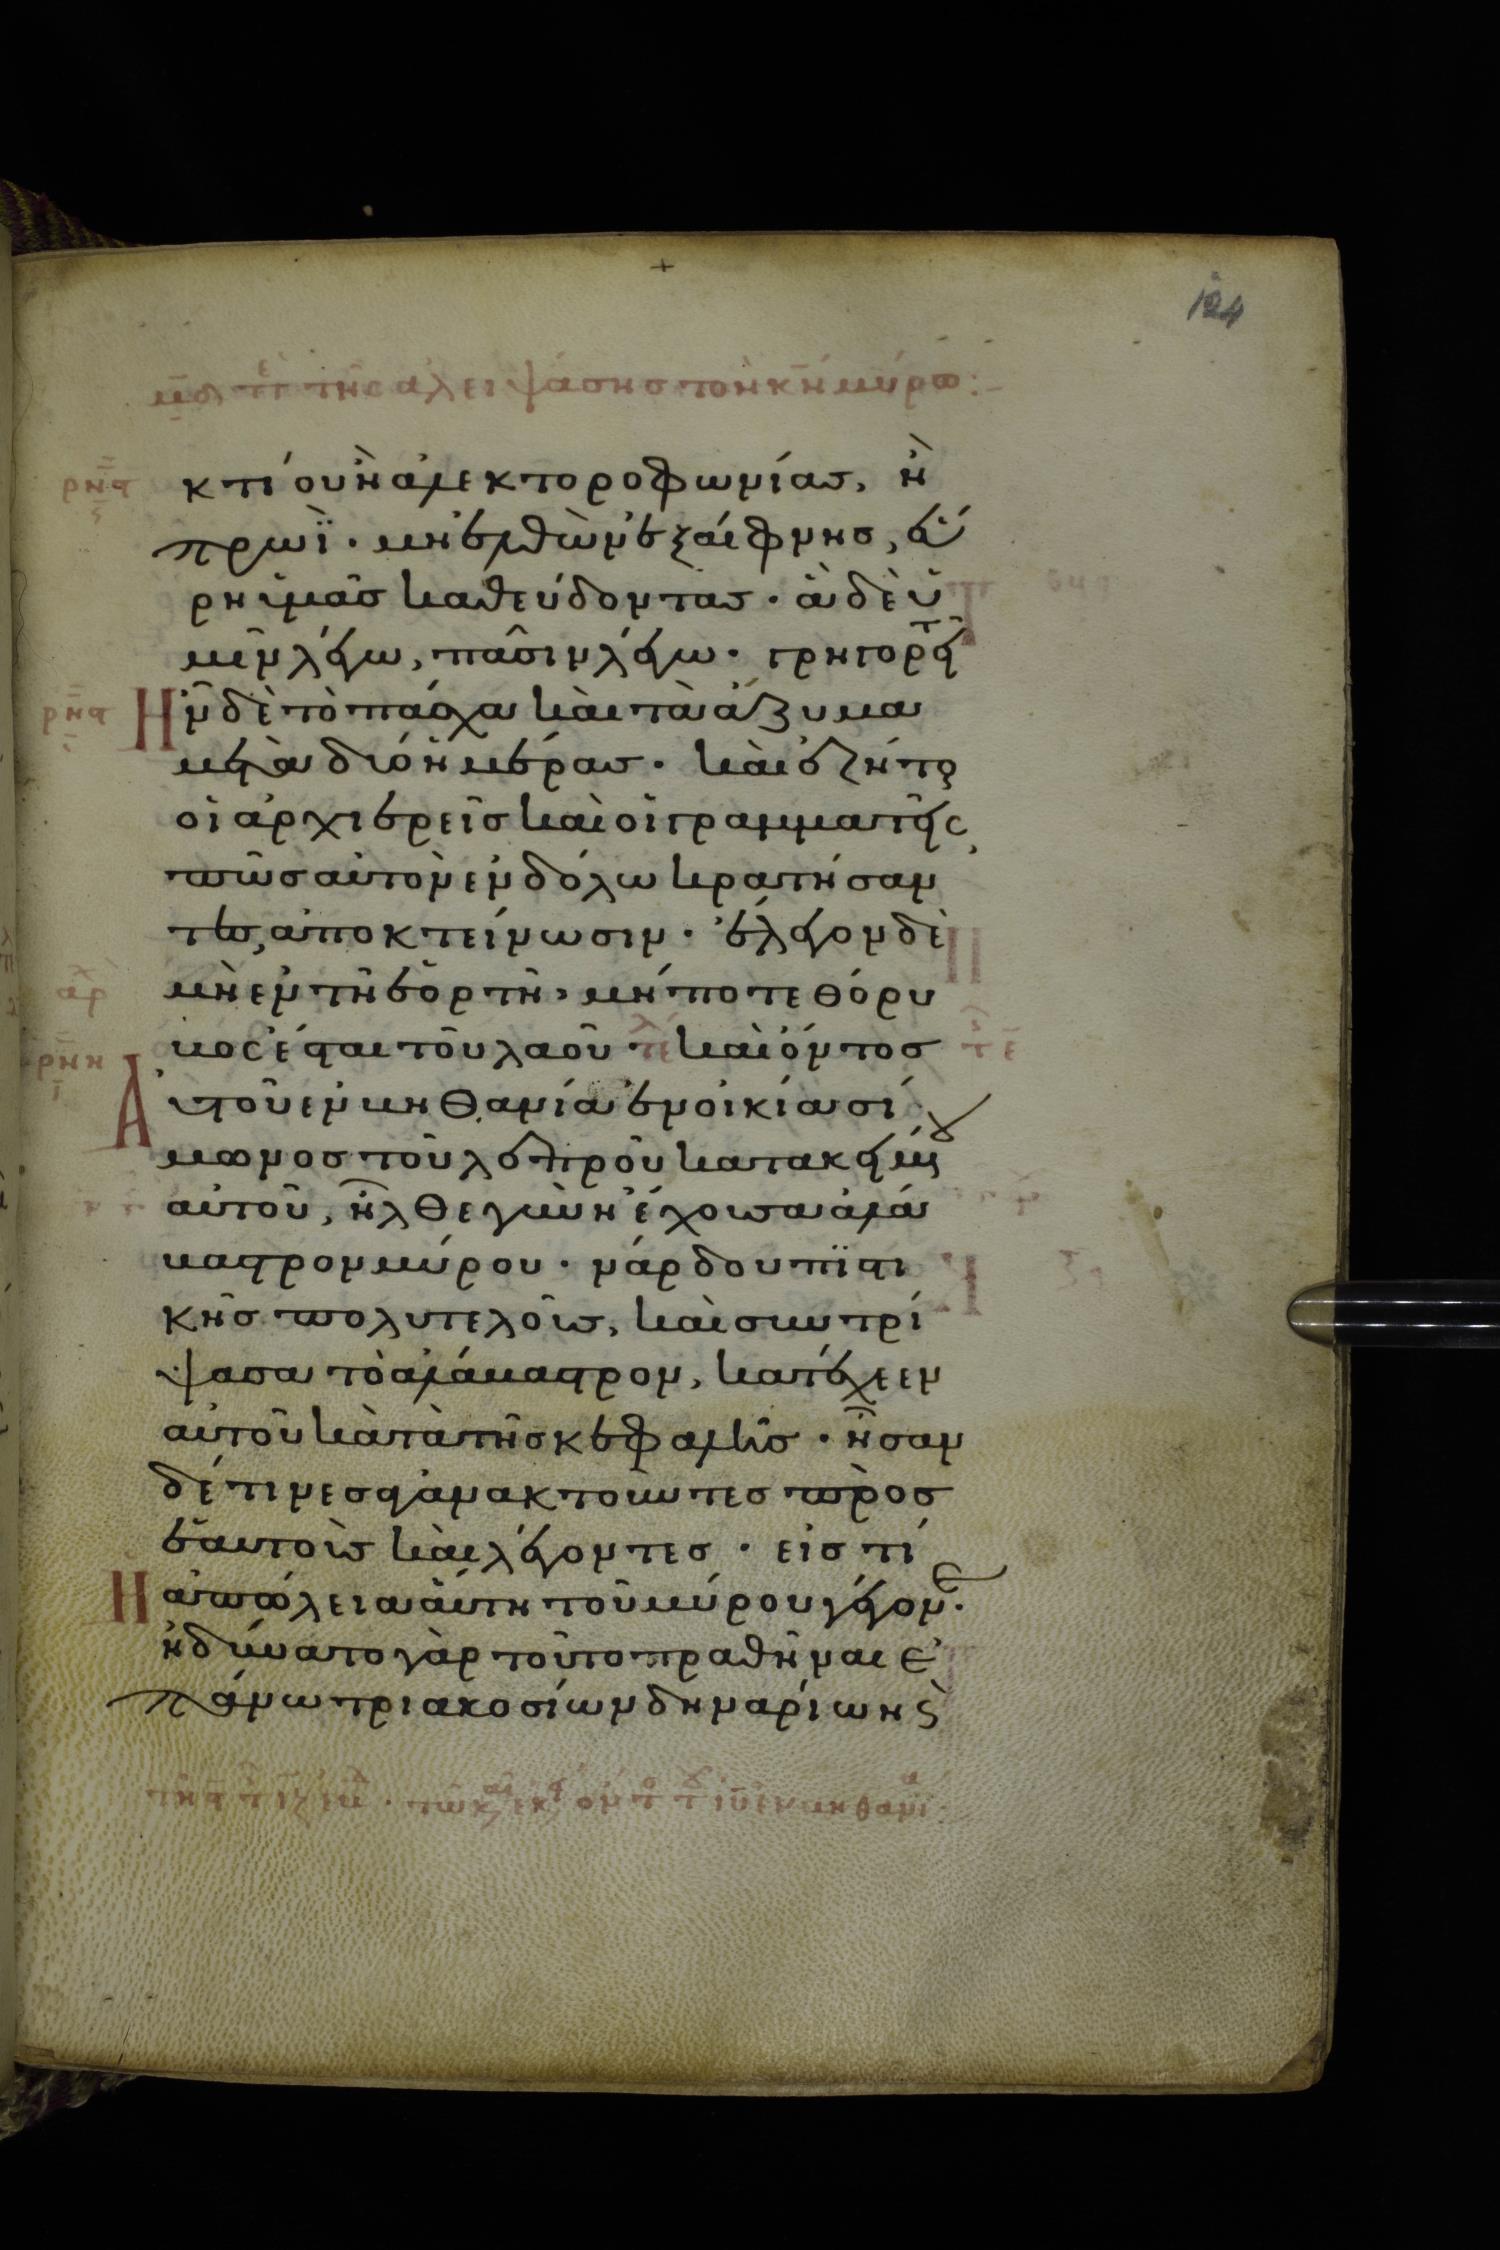 124
τῆς ἀλειψάσης τὸν κ̅ν̅ μύρω:
κτίου ἢ ἀλεκτοροφωνίας, ἢ
πρωΐ· μὴ ἐλθὼν ἐξαίφνης, εὕ
ρη ὑμᾶς καθεύδοντας· ἃ δὲ ὑ
μῖν λέγω, πᾶσιν λέγω· γρηγορεῖτ
Ἦν δὲ τὸ πάσχα καὶ τὰ ἄζυμα
μετὰ δύο ἡμέρας· καὶ ἐζήτ
οἱ ἀρχιερεῖς καὶ οἱ γραμματεῖς,
πῶς αὐτὸν ἐν δόλω κρατήσαν
τες, ἀποκτείνωσιν· ἔλεγον δὲ
μὴ ἐν τῆ ἑορτῆ, μήποτε θόρυ
βος ἔσται τοῦ λαοῦ· τε λ καὶ ὄντος
Αὐτοῦ ἐν βηθανία ἐν οἰκία σί
μωνος τοῦ λεπροῦ κατακειμέν
αὐτοῦ, ἦλθε γυνὴ ἔχουσα ἀλά
βαστρον μύρου· νάρδου πϊστι
κῆς πολυτελοῦς, καὶ συντρί
ψασα τὸ ἀλάβαστρον, κατέχεεν
αὐτοῦ κατὰ τῆς κεφαλῆς· ἦσαν
δέ τινες ἀγανακτοῦντες πρὸς
ἑαυτοὺς καὶ λέγοντες· εἰς τί
Ἡ ἀπώλεια αὕτη τοῦ μύρου γέγονεν·
ἠδύνατο γὰρ τοῦτο πραθῆναι ἐ
πάνω τριακοσίων δηναρίων κ